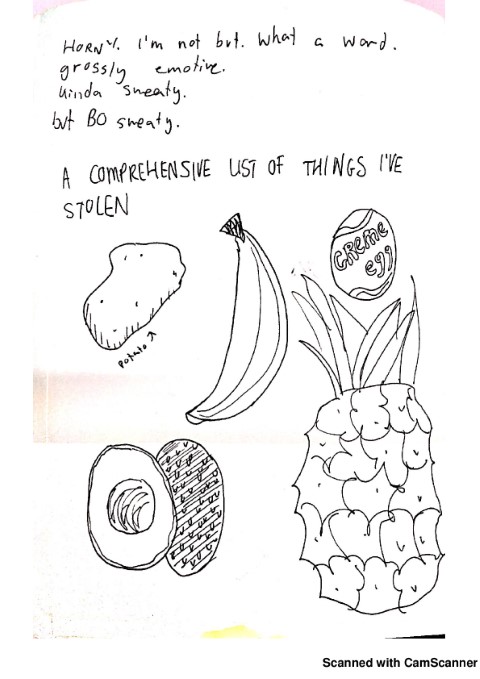 HORNY. I'm not but. What a word.
grossly emotive.
kinda sweaty.
but BO sweaty.
A COMPREHENSIVE LIST OF THINGS I'VE
STOLEN
CREME
egg
potato
Scanned with CamScanner